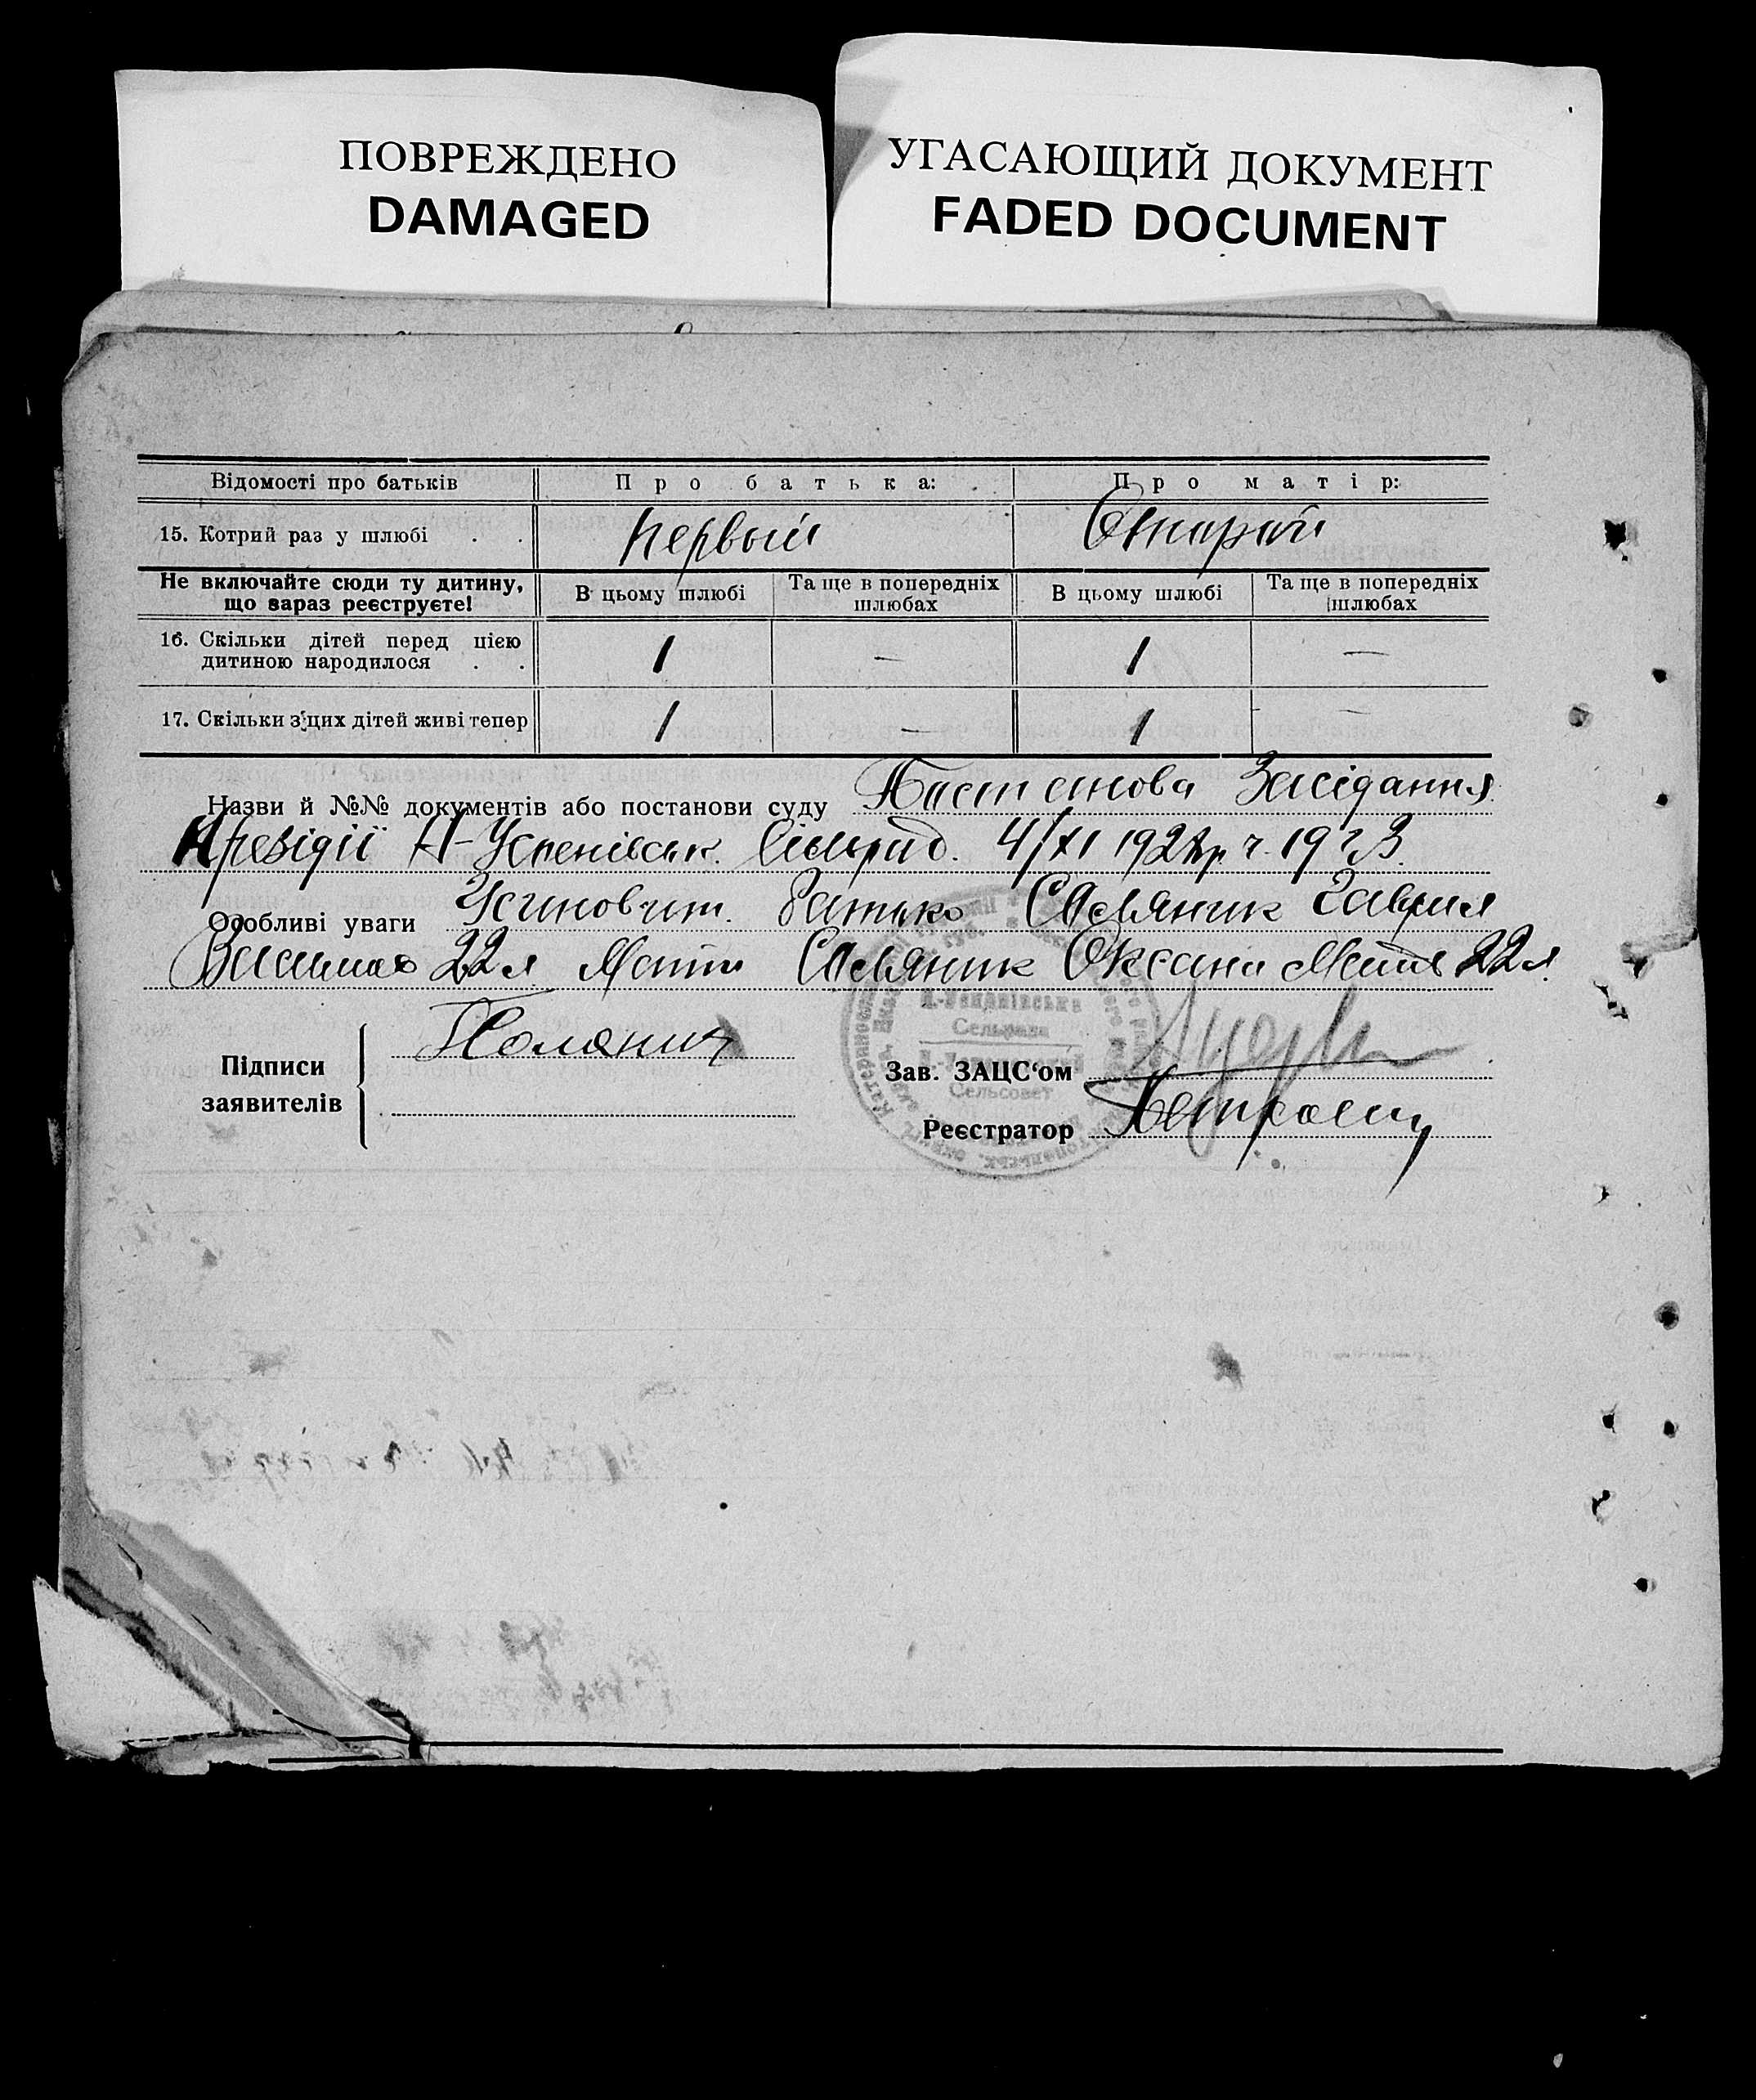 ПОВРЕЖДЕНО
DAMAGED
УГАСАЮЩИЙ ДОКУМЕНТ
FADED DOCUMENT
Відомості про батьків
Про батька:
Про матір:
15. Котрий раз у шлюбі . .
первый
Второй
Не включайте сюди ту дитину, що зараз реєструєте!
В цьому шлюбі
Та ще в попередніх шлюбах
В цьому шлюбі
Та ще в попередніх шлюбах
16. Скільки дітей перед цією дитиною народилося . .
1
—
1
—
17. Скільки з цих дітей живі тепер
1
—
1
—
Назви й №№ документів або постанови суду Постанова Засідання
Президії Н-Успенівськ. Сільрад. 4/XI
Особливі уваги Усиновит. Батько Гаврил
22 л Мати Оксана 22 л.
Підписи заявителів
Зав. ЗАЦС‘ом
Реєстратор
Н.-Успенівська
Сельрада
Н.-Успеновский
Сельсовет